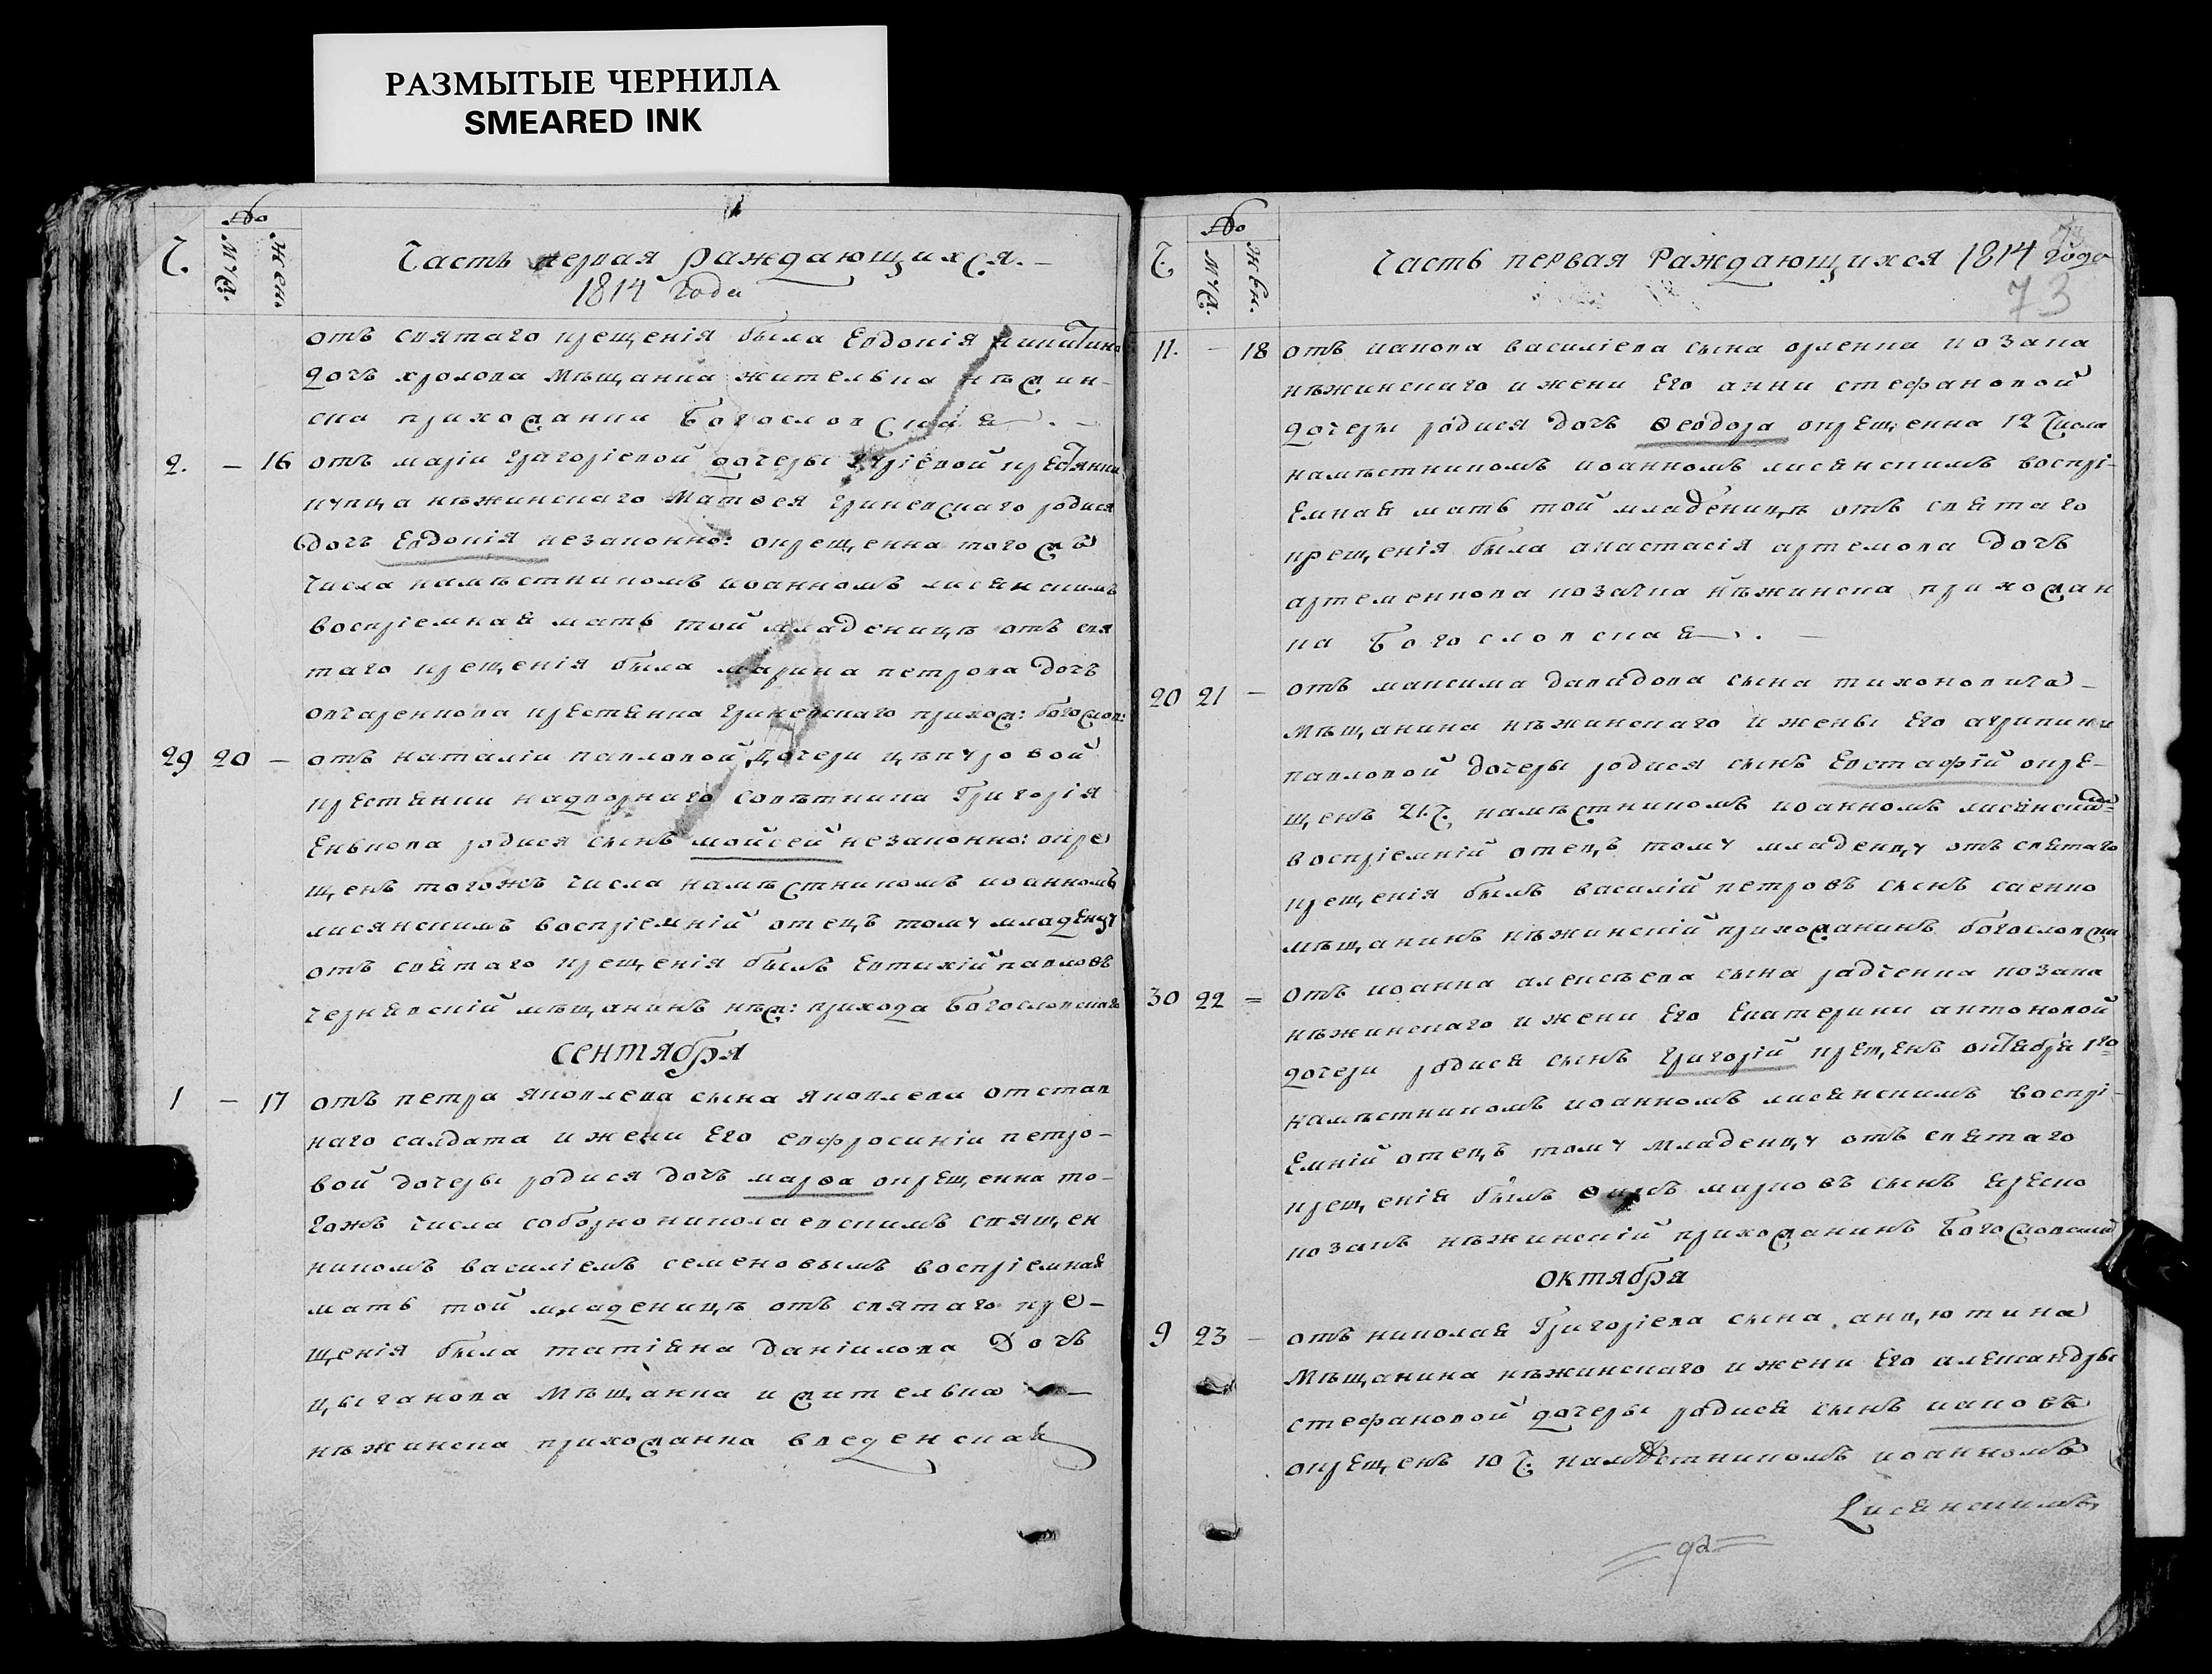 РАЗМЫТЫЕ ЧЕРНИЛА
SMEARED INK
Ч.
№
муж.
жен.
Часть первая раждающихся.
1814 Года
отъ святаго крещенія была Евдокія Никитина
дочь хролова мѣщанка жителька нѣжин-
ска прихожанка Богословская. -
2. - 16 отъ маріи григоріевой дочеры крестянки
купца нѣжинскаго Матѳея гриневскаго родися
дочь Евдокія незаконно: окрещенна того жъ
числа намѣстникомъ иоанномъ лисянскимъ
воспріемная мать той младеницѣ отъ свя
таго крещенія была марина петрова дочь
овчаренкова крестянка гриневскаго прихож: богослов:
29 20 - отъ наталіи павловой дочери цѣпуровой
крестянки надворнаго совѣтника Григорія
родися сынъ мойсей незаконно: окре
щенъ тогожъ числа намѣстникомъ иоанномъ
лисянскимъ воспріемній отецъ тому младенцу
отъ святаго крещенія былъ Евтихій павловъ
чернявскій мѣщанинъ нѣж: прихода богословскаго
сентября
1 - 17 отъ петра яковлева сына яковлева отстав
наго салдата и жени Его евфросиніи петро-
вой дочеры родися дочь марѳа окрещенна то-
гожъ числа соборно николаевскимъ священ
никомъ василіемъ семеновымъ воспріемная
мать той младеницѣ отъ святаго кре-
щенія была татіяна даніилова Дочь
цыганова мѣщанка и жителька
нѣжинска прихожанка введенская
Ч.
№
муж.
жен.
Часть первая Раждающихся 1814 Года
73
11. - 18 отъ иакова василіева сына орленка козака
нѣжинскаго и жени Его анни стефановой
дочеры родися дочь Ѳеодора окрещенна 12 числа
намѣстникомъ иоанномъ лисянскимъ воспрі-
Емная мать той младеницѣ отъ святаго
крещенія была анастасія артемова дочь
артеменкова козачка нѣжинска прихожан
ка Богословская. -
20 21 - отъ максима давидова сына тихоновича -
мѣщанина нѣжинскаго и жены Его агрипини
павловой дочеры родися сынъ Евстафій окре-
щенъ 21. Ч. намѣстникомъ иоанномъ лисянским
воспріемній отецъ тому младенцу отъ святаго
крещенія былъ василій петровъ сынъ саенко
мѣщанинъ нѣжинскій прихожанинъ богословски
30 22 = отъ иоанна алексѣева сына радченка козака
нѣжинскаго и жени Его Екатерини антоновой
дочери родися сынъ григорій крещенъ октября 1го
намѣстникомъ иоанномъ лисянскимъ воспрі-
Емній отецъ тому младенцу отъ святаго
крещенія былъ марковъ сынъ
козакъ нѣжинскій прихожанинъ Богословский
октября
9 23 - отъ николая Григоріева сына анцютина
мѣщанина нѣжинскаго и жени Его александры
стефановой дочеры родися сынъ иаковъ
окрещенъ 10 Ч. намѣстникомъ иоанномъ
Лисянскимъ